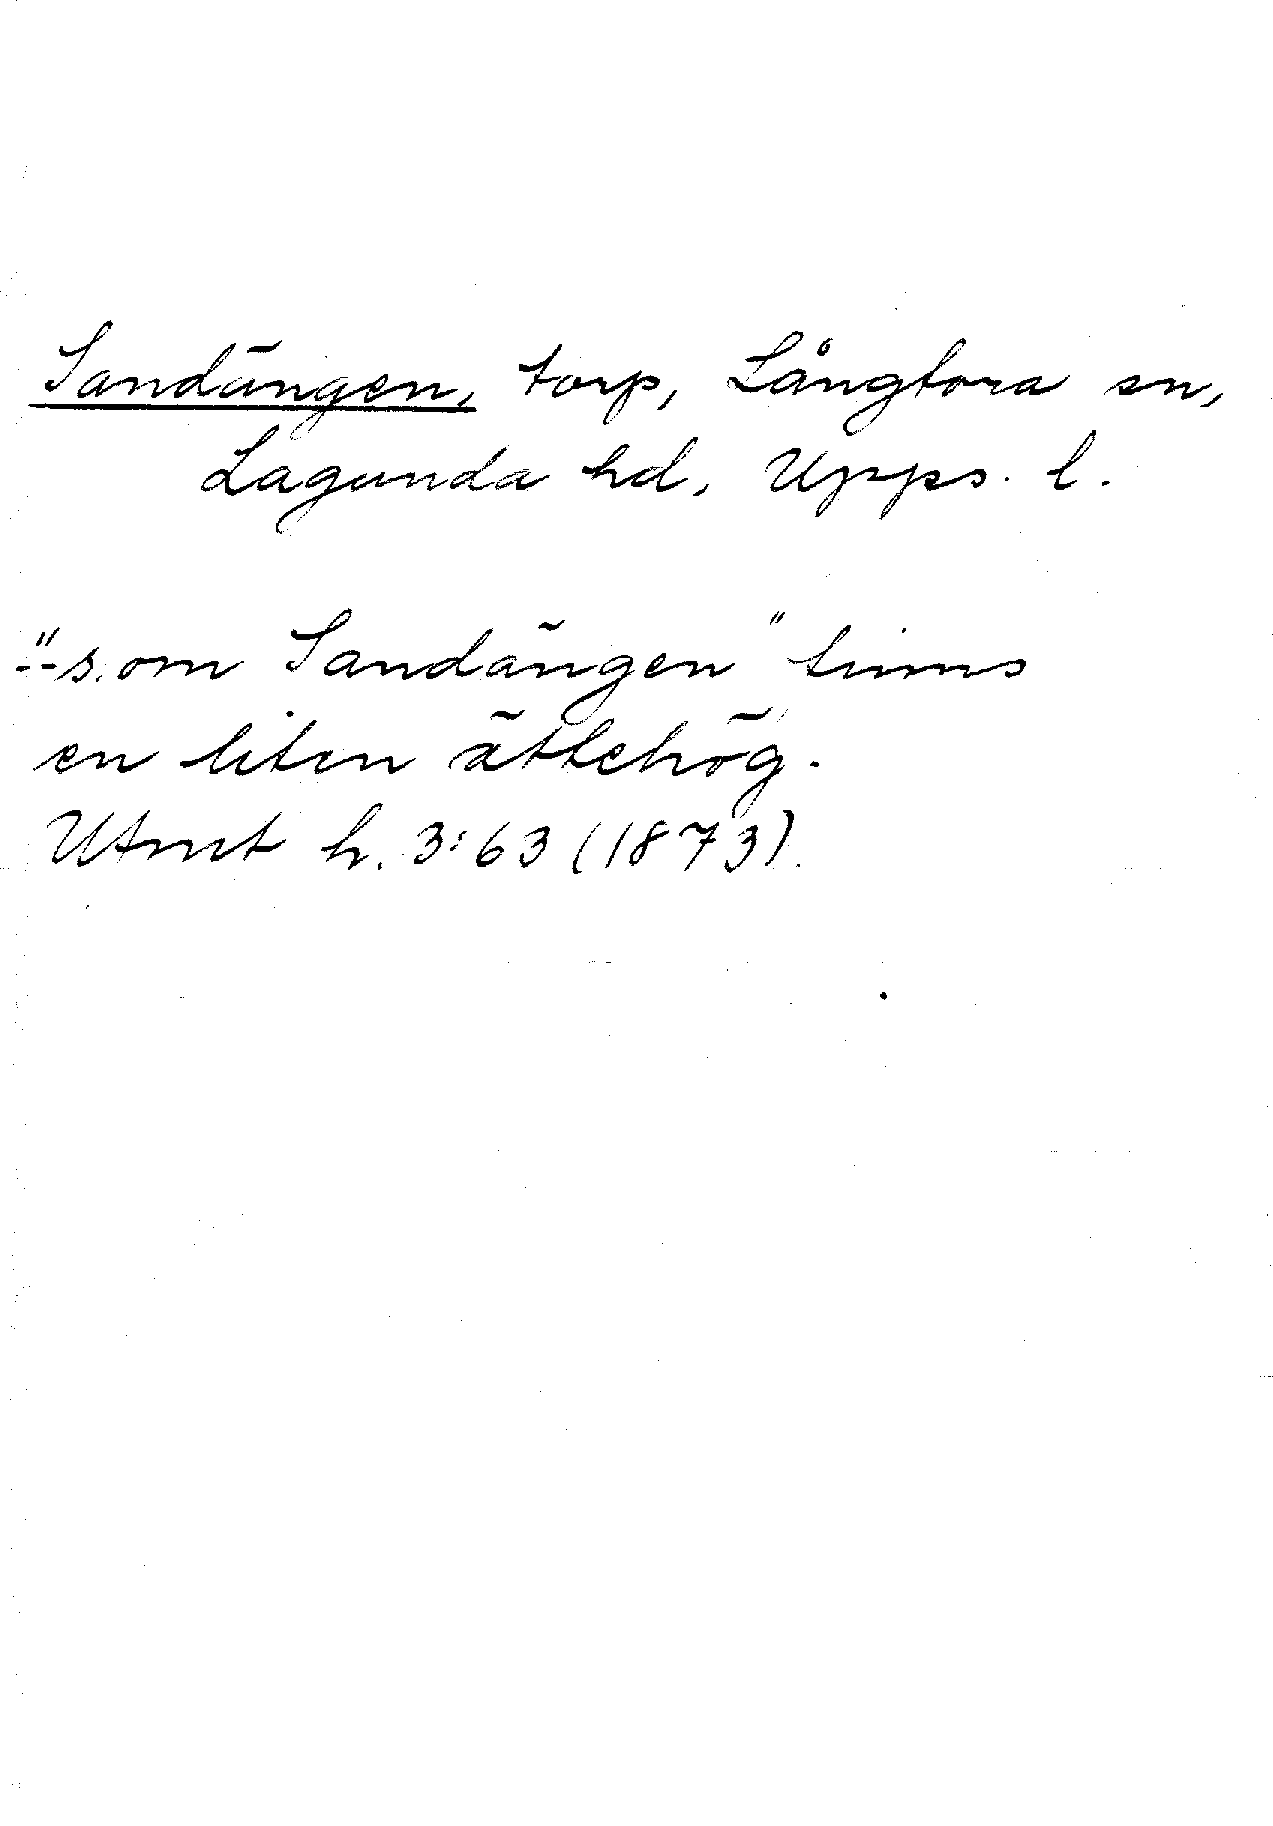 Sandängen, torp, Långtora sn,
Lagunda hd, Upps. l.
"--s. om Sandängen" finns
en liten ättehög.
Utmt h. 3:63 (1873).